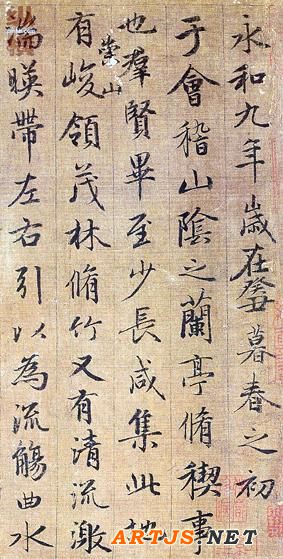 永和九年歲在癸丑暮春之初
于會稽山陰之蘭亭脩稧事
也羣賢畢至少長咸集此地
有崇山峻領茂林脩竹又有清流激
湍暎帶左右引以為流觴曲水
ARTJS.NET